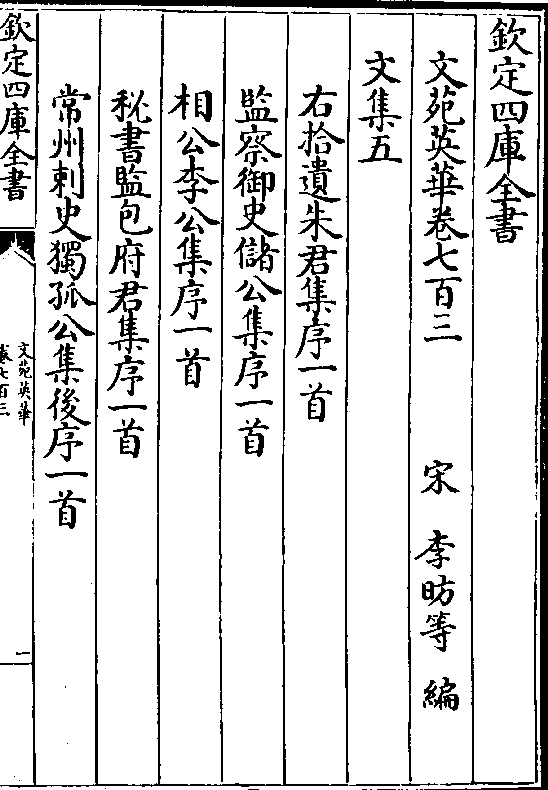 欽定四庫全書
文苑英華卷七百三
宋 李昉等 編
文集五
右拾遺朱君集序一首
監察御史儲公集序一首
相公李公集序一首
秘書監包府君集序一首
常州刺史獨孤公集後序一首
欽定四庫全書
文苑英華
卷七百三
一